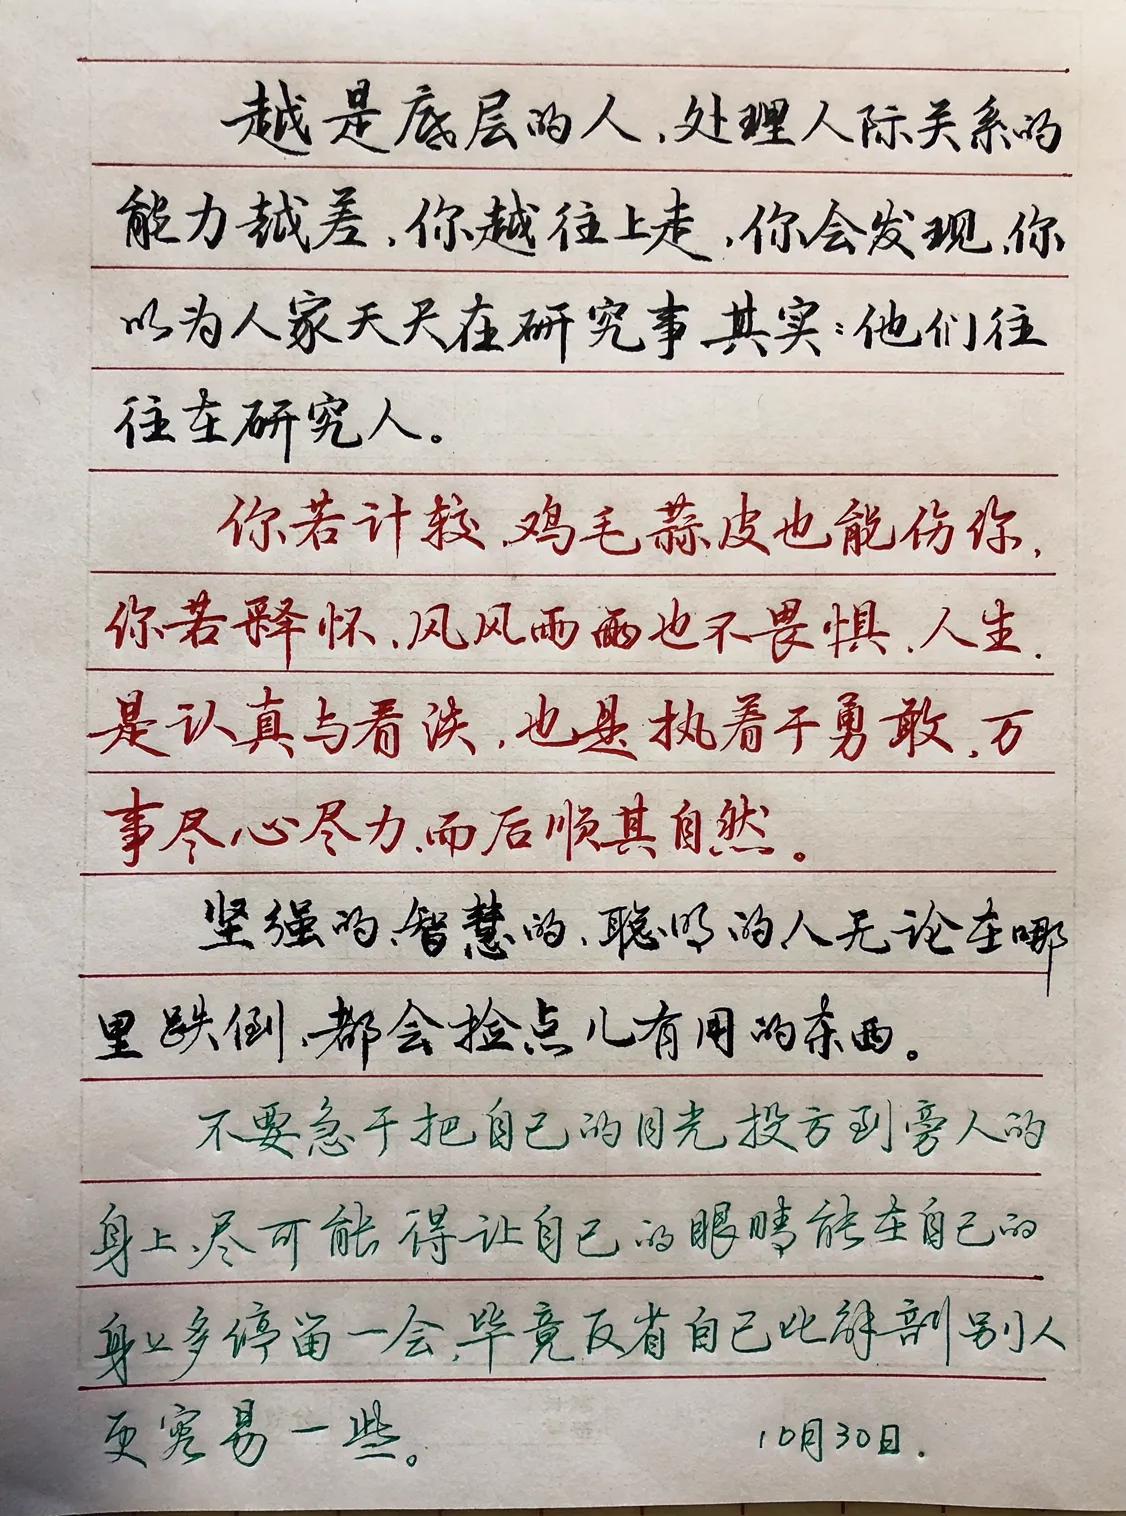 越是底层的人,处理人际关系的
能力越差,你越往上走,你会发现,你
以为人家天天在研究事其实:他们往
往在研究人。
你若计较,鸡毛蒜皮也能伤你,
你若释怀,风风雨雨也不畏惧,人生.
是认真与看淡,也是执着于勇敢,万
事尽心尽力,而后顺其自然。
坚强的,智慧的,聪明的人无论在哪
里跌倒,都会捡点儿有用的东西。
不要急于把自己的目光投方到旁人的
身上,尽可能得让自己的眼睛能在自己的
身上多停留一会,毕竟反省自己比解剖别人
更容易一些。
10月30日.